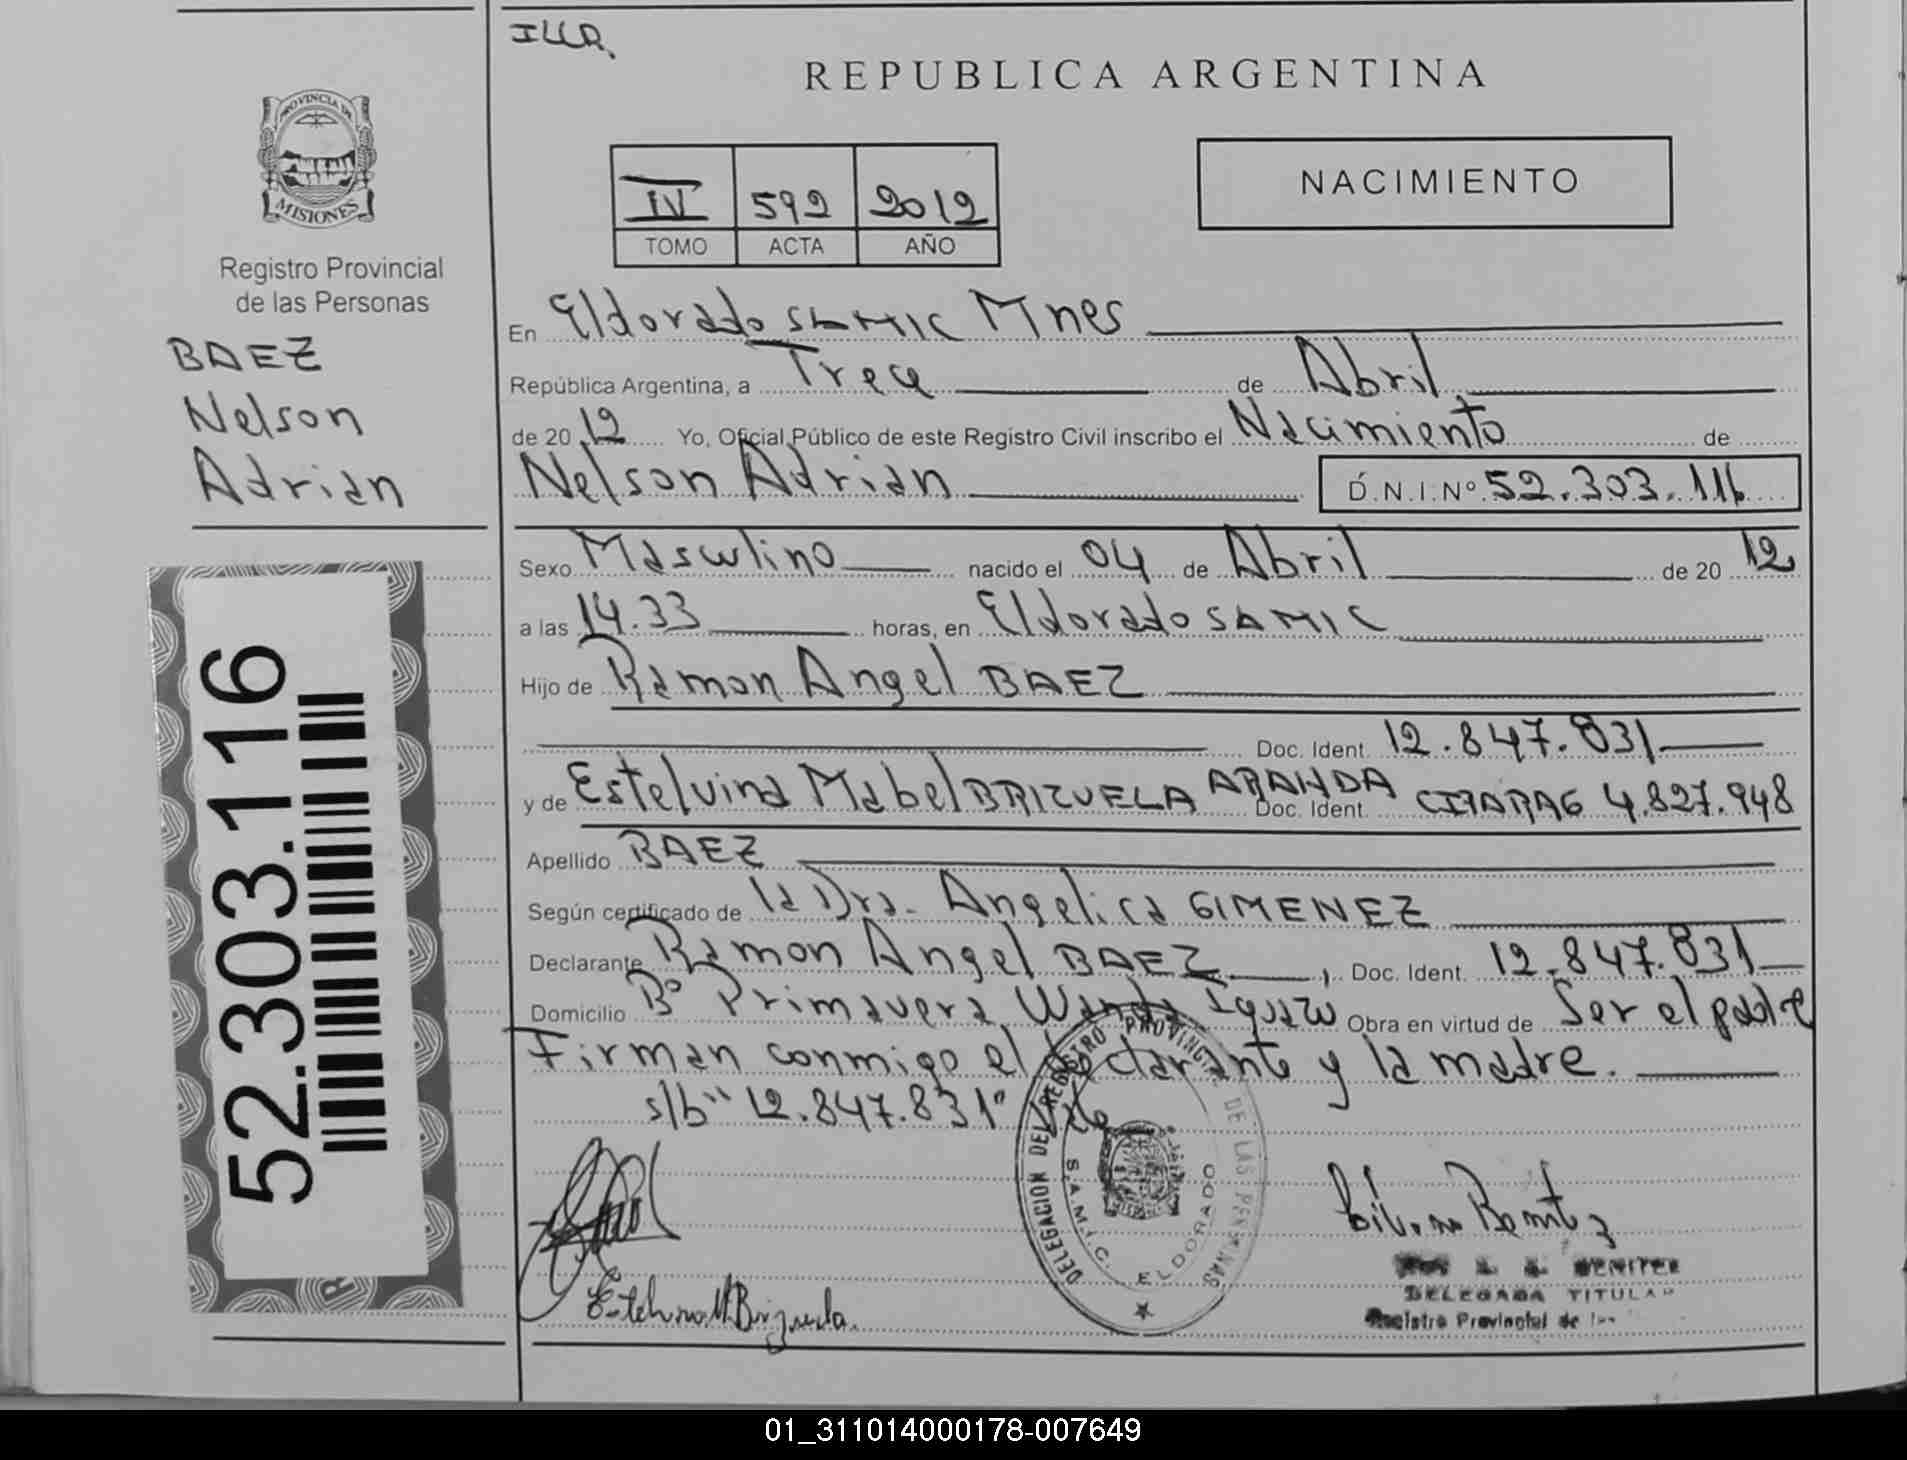 ILLR.
REPUBLICA ARGENTINA
PROVINCIA DE
MISIONES
Registro Provincial
de las Personas
BAEZ
Nelson
Adrian
IV 592 2012
TOMO ACTA AÑO
NACIMIENTO
En Eldorado SAMIC Mnes
República Argentina, a Trece de Abril
de 20 12 Yo, Oficial Público de este Registro Civil inscribo el Nacimiento de
Nelson Adrian D.N.I.Nº 52.303.116
Sexo Masculino nacido el 04 de Abril de 20 12
a las 14.33 horas, en Eldorado SAMIC
Hijo de Ramon Angel BAEZ
Doc. Ident. 12.847.831
y de Estelvina Mabel BRIZUELA ARANDA Doc. Ident. CI 4.827.948
Apellido BAEZ
Según certificado de la Dra. Angelica GIMENEZ
Declarante Ramon Angel BAEZ, Doc. Ident. 12.847.831
Domicilio Bº Primavera Wanda Iguazu Obra en virtud de Ser el padre
Firman conmigo el declarante y la madre.
s/b " 12.847.831" Vale
52.303.116
DELEGACION DEL REGISTRO PROVINCIAL DE LAS PERSONAS
S.A.M.I.C. ELDORADO
Estelvina M Brizuela.
Benitez
BENITEZ
DELEGADA TITULAR
Registro Provincial de
01_311014000178-007649